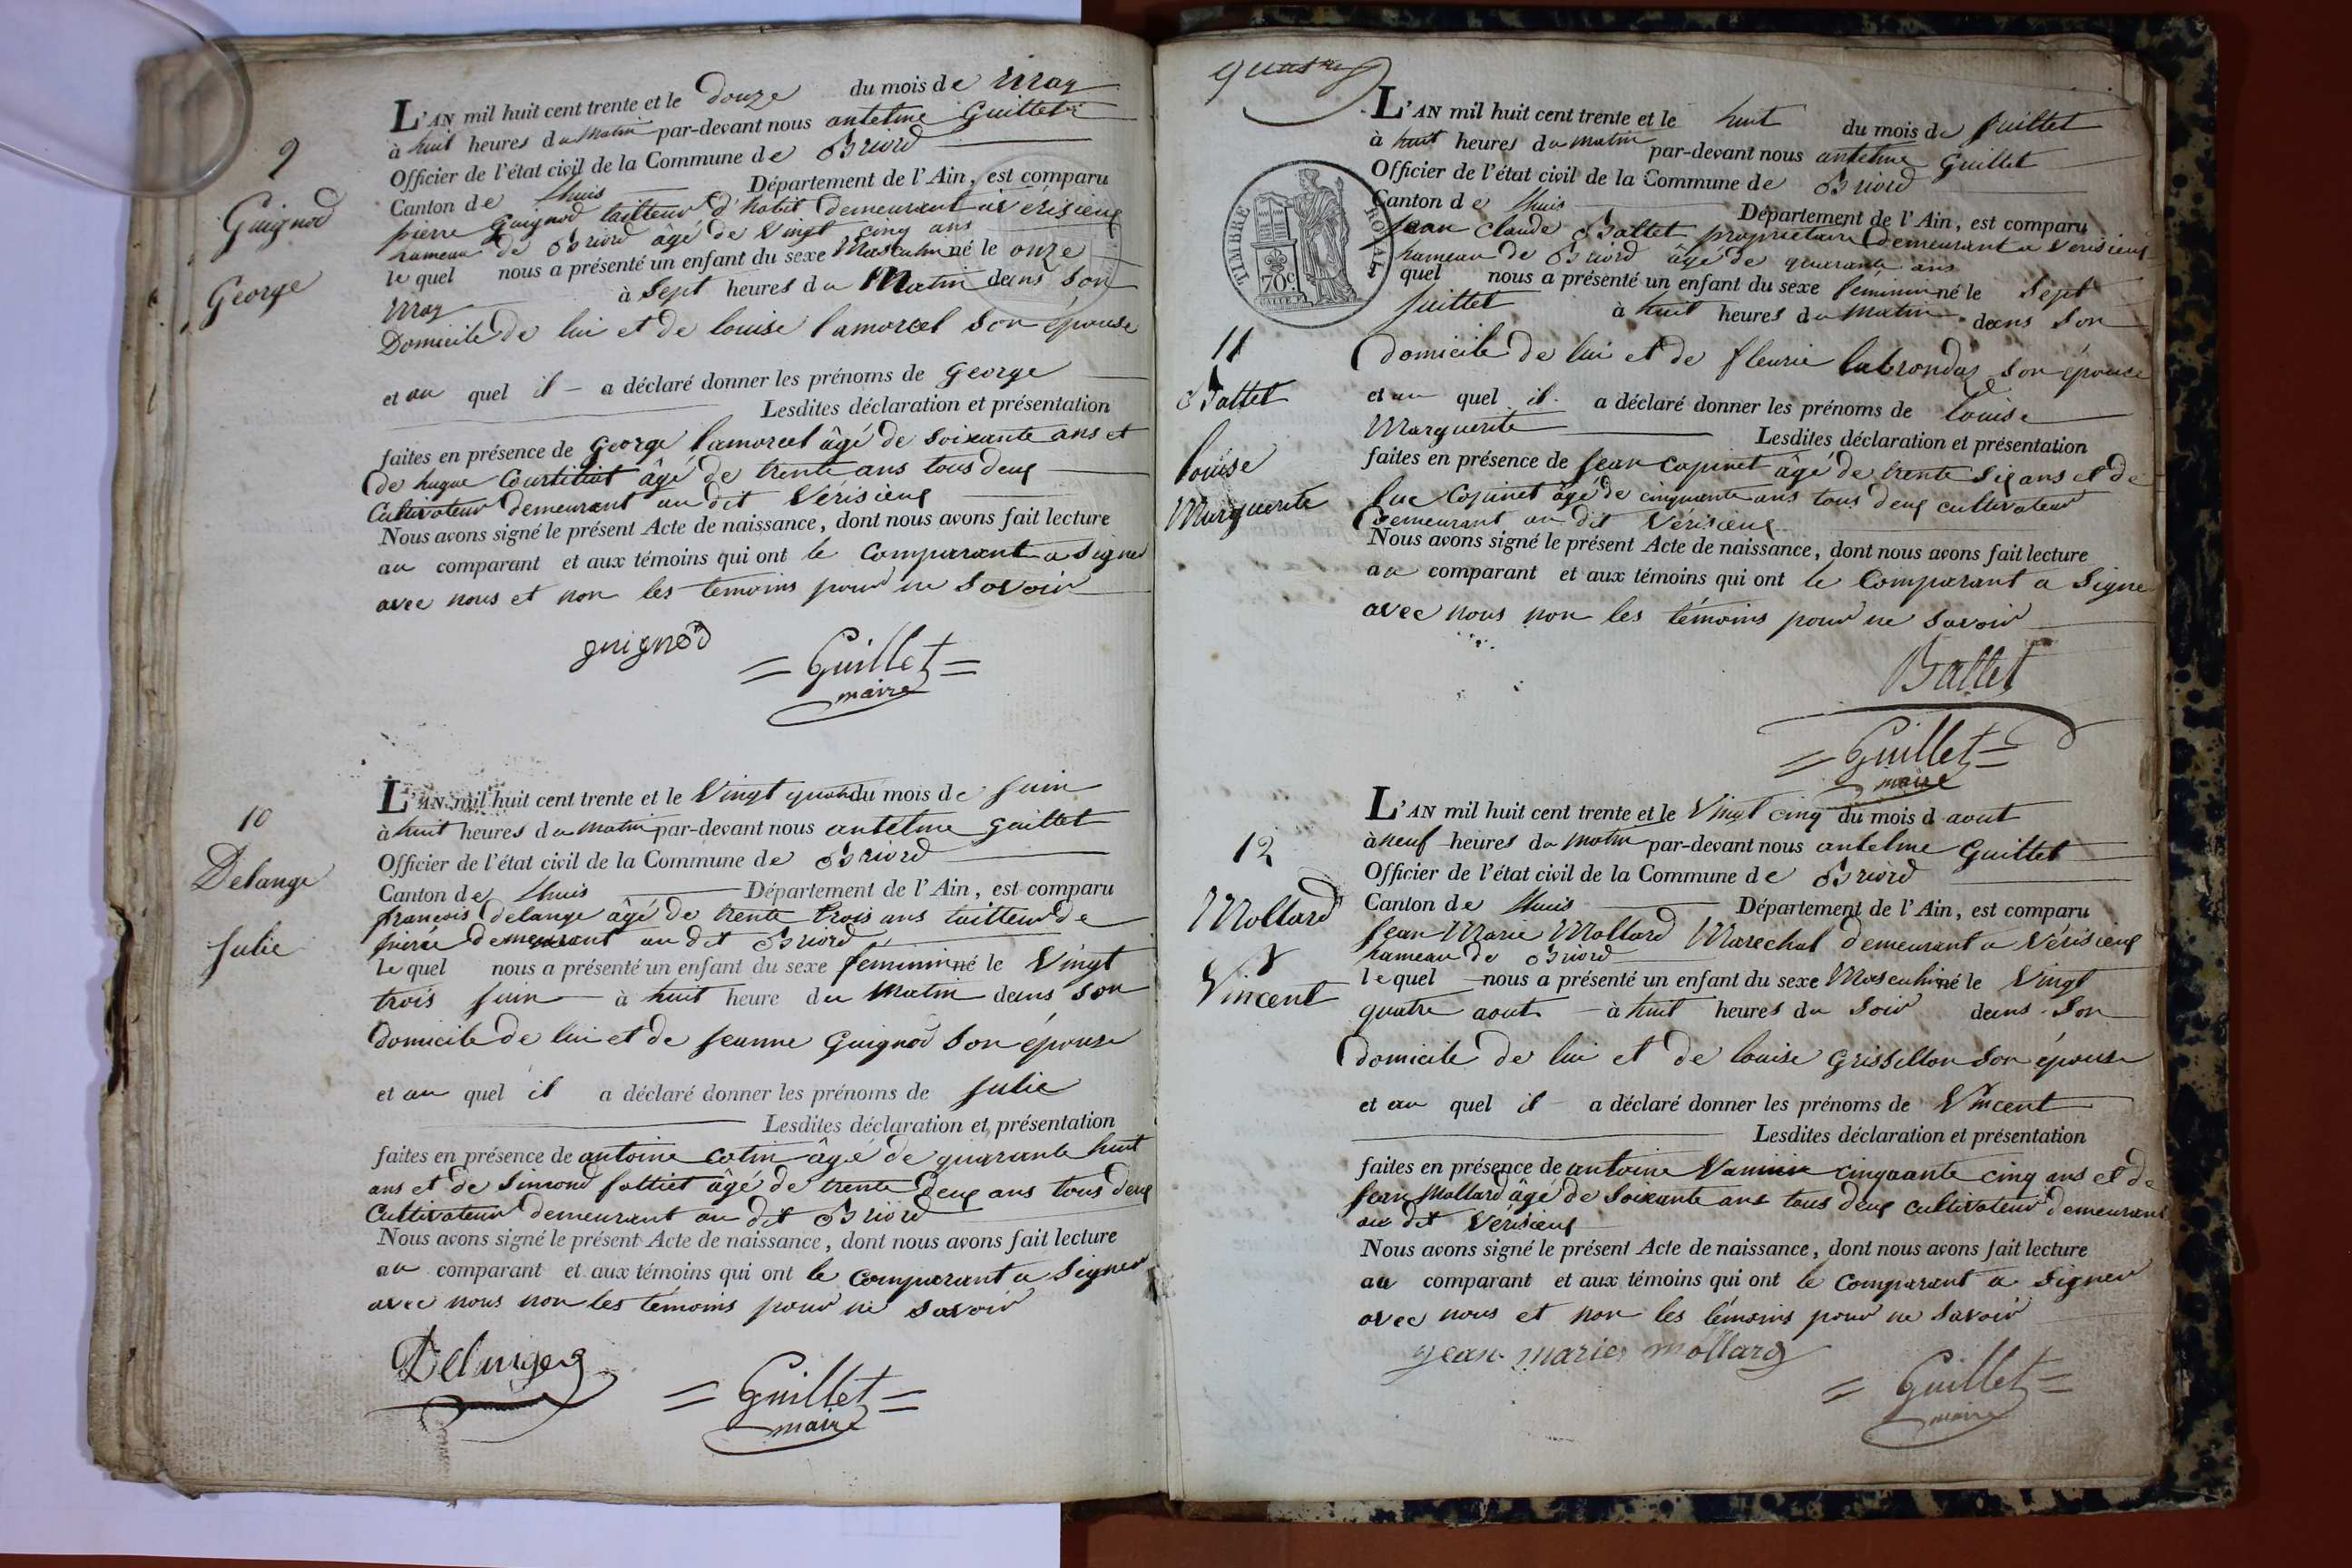 9
Guignod
George
L'AN mil huit cent trente et le douze du mois de May
à huit heures du matin par-devant nous antelme Guillet
Officier de l'état civil de la Commune de Briord
Canton de Lhuis Département de l'Ain, est comparu
pierre Guignod tailleur d'habit demeurant à Vérisieux
hameau de Briord âgé de Vingt cinq ans
le quel nous a présenté un enfant du sexe Masculin né le onze
May à Sept heures du Matin dans son
Domicile de lui et de louise lamorcel son épouse
et au quel il a déclaré donner les prénoms de George
Lesdites déclaration et présentation
faites en présence de George lamorcel âgé de soixante ans et
de hugue âgé de trente ans tous deux
Cultivateur demeurant au dit Vérisieux
Nous avons signé le présent Acte de naissance, dont nous avons fait lecture
au comparant et aux témoins qui ont le Comparant a signer
avec nous et non les temoins pour ne savoir
guignod
= Guillet =
maire
10
Delange
Julie
L'AN mil huit cent trente et le Vingt quatre du mois de Juin
à huit heures du matin par-devant nous antelme Guillet
Officier de l'état civil de la Commune de Briord
Canton de Lhuis Département de l'Ain, est comparu
francois delange âgé de trente trois ans tailleur de
pierre demeurant au dit Briord
le quel nous a présenté un enfant du sexe féminin né le Vingt
trois Juin à huit heure du Matin dans son
domicile de lui et de Jeanne Guignod son épouse
et au quel il a déclaré donner les prénoms de Julie
Lesdites déclaration et présentation
faites en présence de antoine Cotin âgé de quarante huit
ans et de Simond âgé de trente deux ans tous deux
Cultivateur demeurant au dit Briord
Nous avons signé le présent Acte de naissance, dont nous avons fait lecture
au comparant et aux témoins qui ont le comparant a signer
avec nous non les témoins pour ne savoir
Delange
= Guillet =
maire
quatre
TIMBRE ROYAL
70 c
11
Ballet
louise
Marguerite
L'AN mil huit cent trente et le huit du mois de Juillet
à huit heures du matin par-devant nous antelme Guillet
Officier de l'état civil de la Commune de Briord
Canton de Lhuis Département de l'Ain, est comparu
Jean Claude Ballet propriétaire demeurant a Vérisieux
hameau de Briord âgé de quarante ans
quel nous a présenté un enfant du sexe féminin né le Sept
Juillet à huit heures du Matin dans son
domicile de lui et de fleurie labronday son épouse
et au quel il a déclaré donner les prénoms de louise
Marguerite Lesdites déclaration et présentation
faites en présence de Jean Copinet âgé de trente six ans et de
luc Copinet âgé de cinquante ans tous deux cultivateur
demeurant au dit Vérisieux
Nous avons signé le présent Acte de naissance, dont nous avons fait lecture
au comparant et aux témoins qui ont le Comparant a signe
avec nous non les témoins pour ne savoir
Ballet
= Guillet =
maire
12
Mollard
Vincent
L'AN mil huit cent trente et le Vingt cinq du mois d aout
à neuf heures du matin par-devant nous antelme Guillet
Officier de l'état civil de la Commune de Briord
Canton de Lhuis Département de l'Ain, est comparu
Jean Marie Mollard Marechal demeurant a Vérisieux
hameau de Briord
le quel nous a présenté un enfant du sexe Masculin né le Vingt
quatre aout à huit heures du soir dans son
domicile de lui et de louise Grissillon son épouse
et au quel il a déclaré donner les prénoms de Vincent
Lesdites déclaration et présentation
faites en présence de antoine cinquante cinq ans et de
Jean Mollard âgé de soixante ans tous deux cultivateur demeurant
au dit Vérisieux
Nous avons signé le présent Acte de naissance, dont nous avons fait lecture
au comparant et aux témoins qui ont le comparant a signer
avec nous et non les témoins pour ne savoir
jean marie mollard
= Guillet =
maire